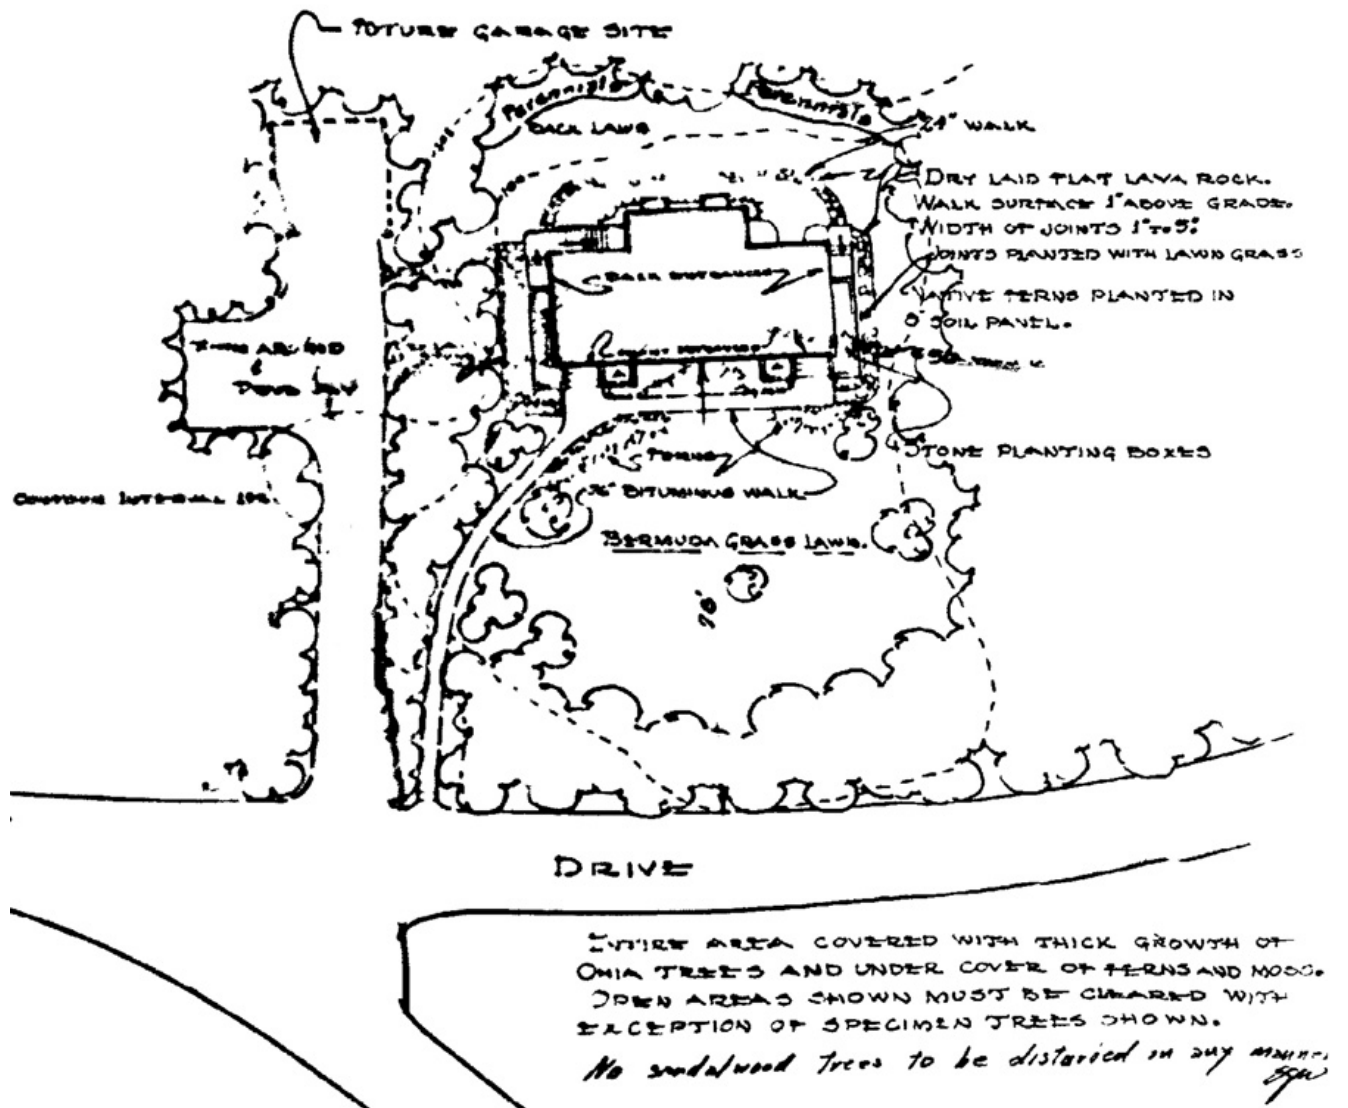 FUTURE GARAGE SITE
Perennials
Perennials
BACK LAWN
24" WALK
DRY LAID FLAT LAVA ROCK.
WALK SURFACE 1" ABOVE GRADE.
WIDTH OF JOINTS 1" TO 5"
JOINTS PLANTED WITH LAWN GRASS
BACK ENTRANCES
NATIVE FERNS PLANTED IN
8" SOIL PANEL.
TURN AROUND
&
FRONT ENTRANCES
STONE PLANTING BOXES
FERNS
CONTOUR INTERVAL
36" BITUMINUS WALK
BERMUDA GRASS LAWN.
DRIVE
ENTIRE AREA COVERED WITH THICK GROWTH OF
OHIA TREES AND UNDER COVER OF FERNS AND MOSS.
OPEN AREAS SHOWN MUST BE CLEARED WITH
EXCEPTION OF SPECIMEN TREES SHOWN.
No sandalwood trees to be distaried in any manner